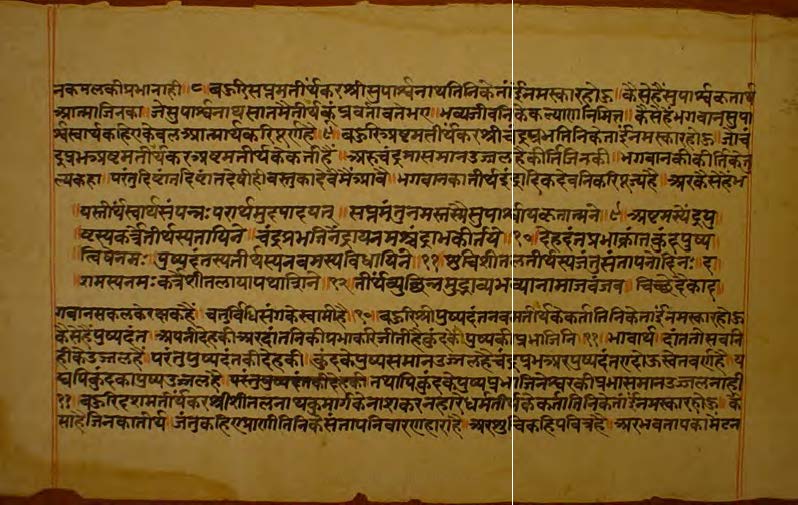 नकमलकीप्रभानाही ॥८॥ बऊरिसप्तमतीर्थकरश्रीसुपार्श्वनाथतिनिकेतांईनमस्कारहोऊ ॥ कैसेहैंसुपार्श्वकृतार्थ
आत्माजिनका ॥ जेसुपार्श्वनाथसातमैतीर्थकेप्रवर्तावतेभए ॥ भव्यजीवनिकेकल्याणनिमित्त ॥ कैसेहैंभगवानसुपा
र्श्वस्वार्थकहिएकेवलआत्मार्थकरिपूर्णहै ॥९॥ बऊरिअष्टमतीर्थकरश्रीचंद्रप्रभतिनिकेतांईनमस्कारहोऊ ॥ जोचं
द्रप्रभअष्टमतीर्थकरअष्टमतीर्थकेकर्ताहैं ॥ अरुचंद्रमासमानउज्जलहैकीर्तिजिनकी ॥ भगवानकीकीर्तिकेतु
ल्यकहा ॥ परंतुदृष्टांतदेषीहीवस्तुकादेवेमैंआवै ॥ भगवानकातीर्थइंद्रादिकदेवनिकरिपूज्यहै ॥ अरकैसेहैंभ
यस्तीर्थंस्वार्थसंपन्नःपरार्थमुदपादयत् ॥ सप्तमंतुनमस्तस्मैसुपार्श्वायकृतात्मने ॥९॥ अष्टमस्येंद्रपु
ष्टस्यकर्त्रेतीर्थस्यतायिने ॥ चंद्रप्रभजिनेंद्रायनमश्चंद्राभकीर्तये ॥१०॥ देहदंतप्रभाक्रांतकुंदपुष्प
त्विषेनमः ॥ पुष्पदंतस्यतीर्थस्यनवमस्यविधायिने ॥११॥ शुचिशीतलतीर्थस्यजंतुसंतापनोदिनः ॥ द
शमस्यनमःकर्त्रेशीतलायापथाच्छिने ॥१२॥ तीर्थंव्युच्छिन्नमुद्भाव्यभव्यानामाजवंजव
गवानसकलकेरक्षकहैं ॥ चतुर्विधिसंगकेस्वामीहै ॥१०॥ बऊरिश्रीपुष्पदंतनवमतीर्थकेकर्तातिनिकेतांईनमस्कारहोऊ
कैसेहैंपुष्पदंत ॥ अपनीदेहकीअरदांतनिकीप्रभाकरिजीतीहैकुंदकेपुष्पकीप्रभाजिनि ॥११॥ भावार्थ ॥ दांततोसबनि
हीकेउज्जलहै ॥ परंतुपुष्पदंतकीदेहकी ॥ कुंदकेपुष्पसमानउज्जलहैचंद्रप्रभअरपुष्पदंतएदोऊस्वेतवर्णहै ॥ य
द्यपिकुंदकापुष्पउज्जलहै ॥ परंतुपुष्पदंतकीदेहकी ॥ तथापिकुंदकेपुष्पप्रभाजिनेश्वरकीप्रभासमानउज्जलनाही
११ ॥ बऊरिदशमतीर्थकरश्रीशीतलनाथकुमार्गकेनाशकरनहारेधर्मतीर्थकेकर्तातिनिकेतांईनमस्कारहोऊ ॥ कै
साहैजिनकातीर्थ ॥ जंतुकहिएप्राणीतिनिकेसंतापनिवारणहाराहै ॥ अरशुचिकहिपवित्रहै ॥ अरभवतापकामेटन